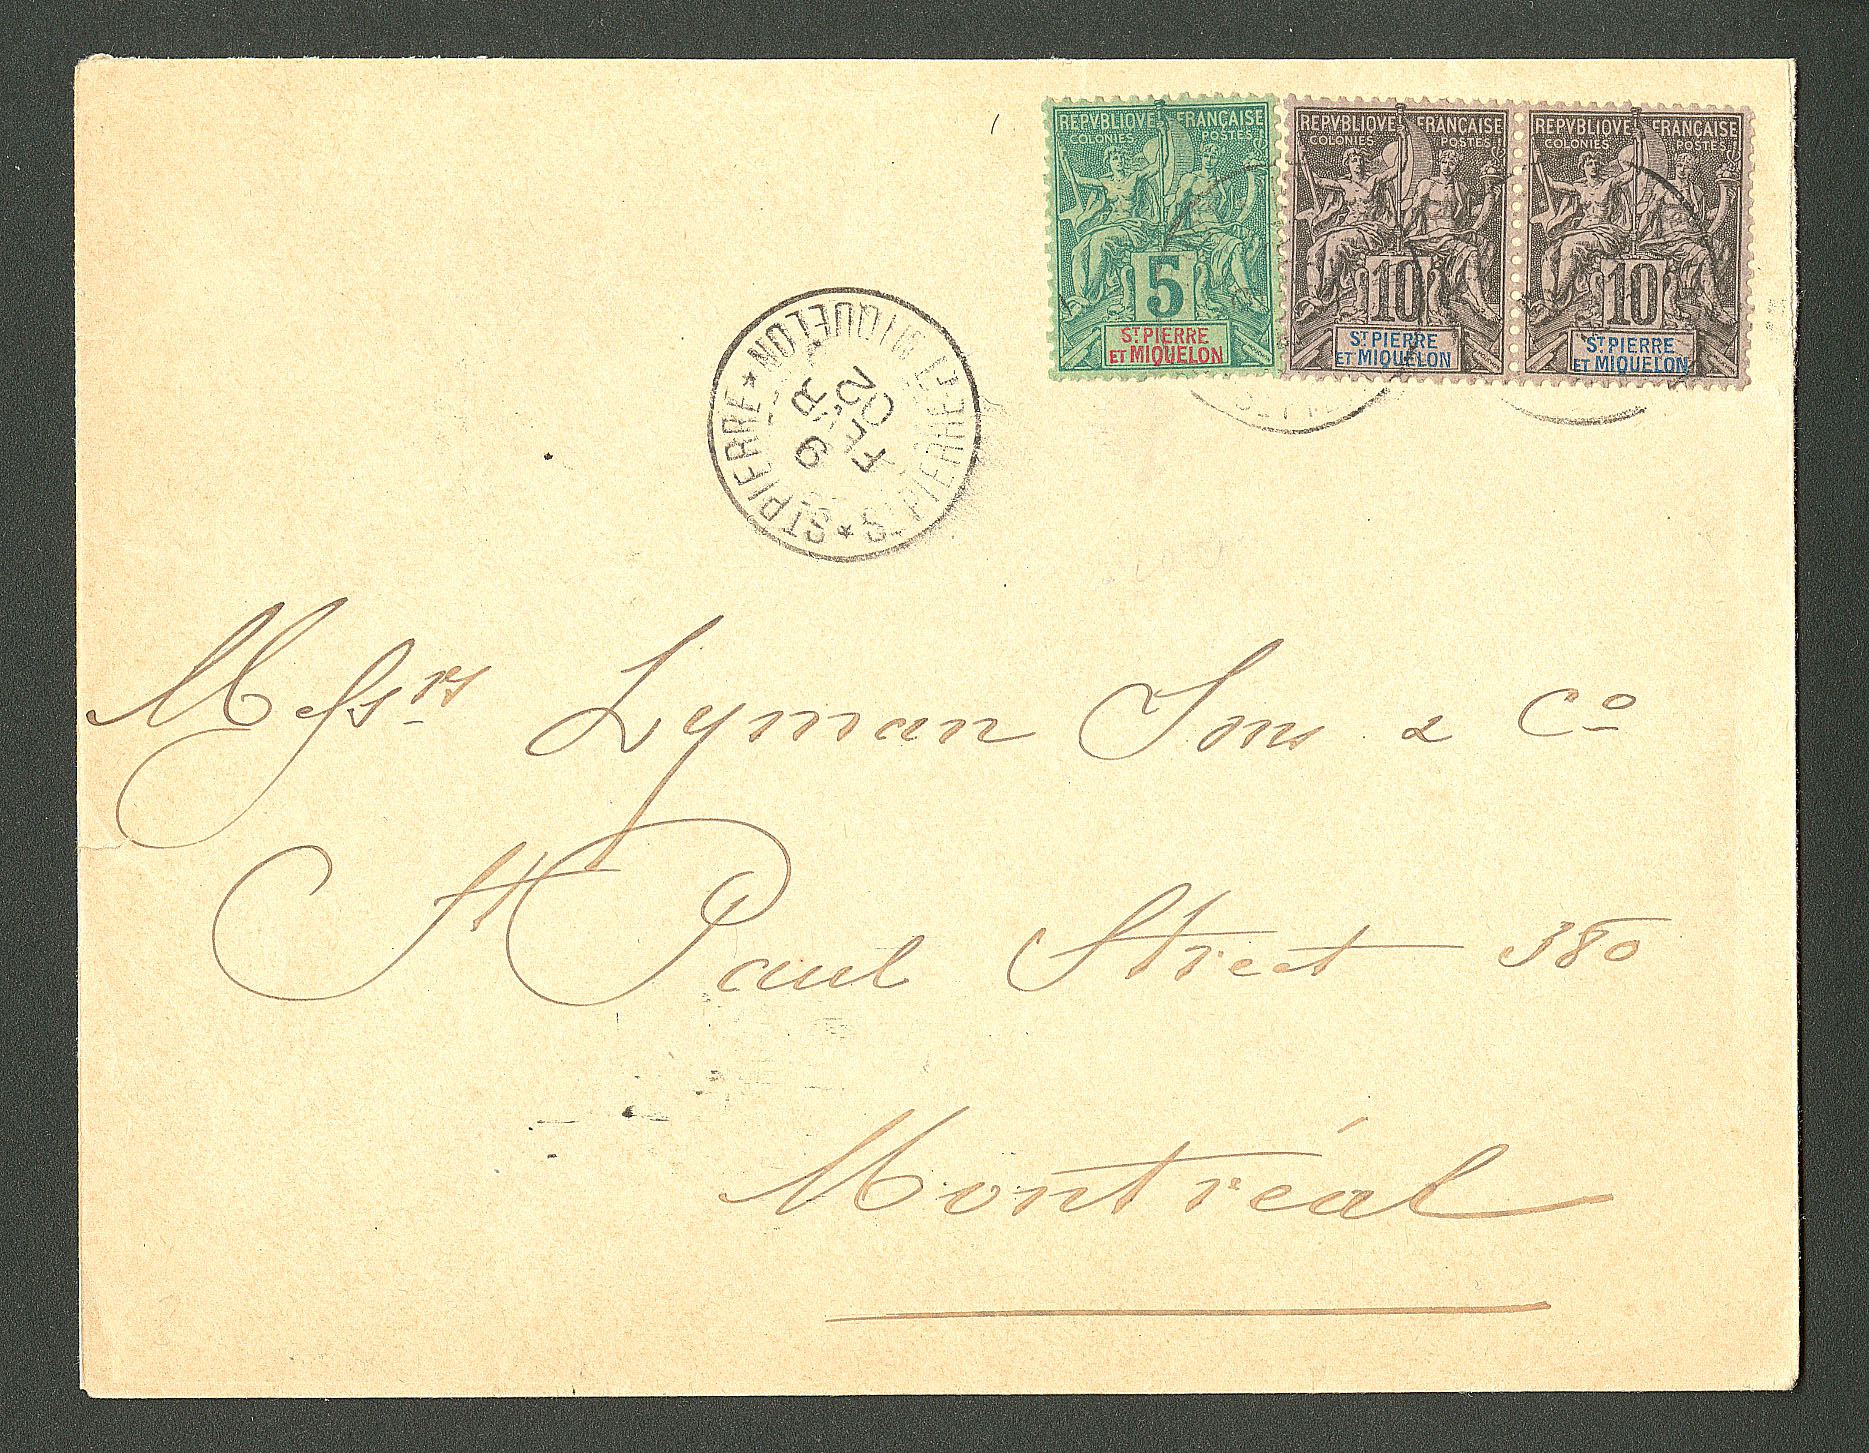 REPVBLIQUE FRANÇAISE
COLONIES POSTES
5
ST PIERRE
ET MIQUELON
REPVBLIQUE FRANÇAISE
COLONIES POSTES
10
ST PIERRE
ET MIQUELON
REPVBLIQUE FRANÇAISE
COLONIES POSTES
10
ST PIERRE
ET MIQUELON
ST PIERRE * ST PIERRE ET MIQUELON *
Messrs Lyman Sons & Co
St Paul Street 380
Montréal